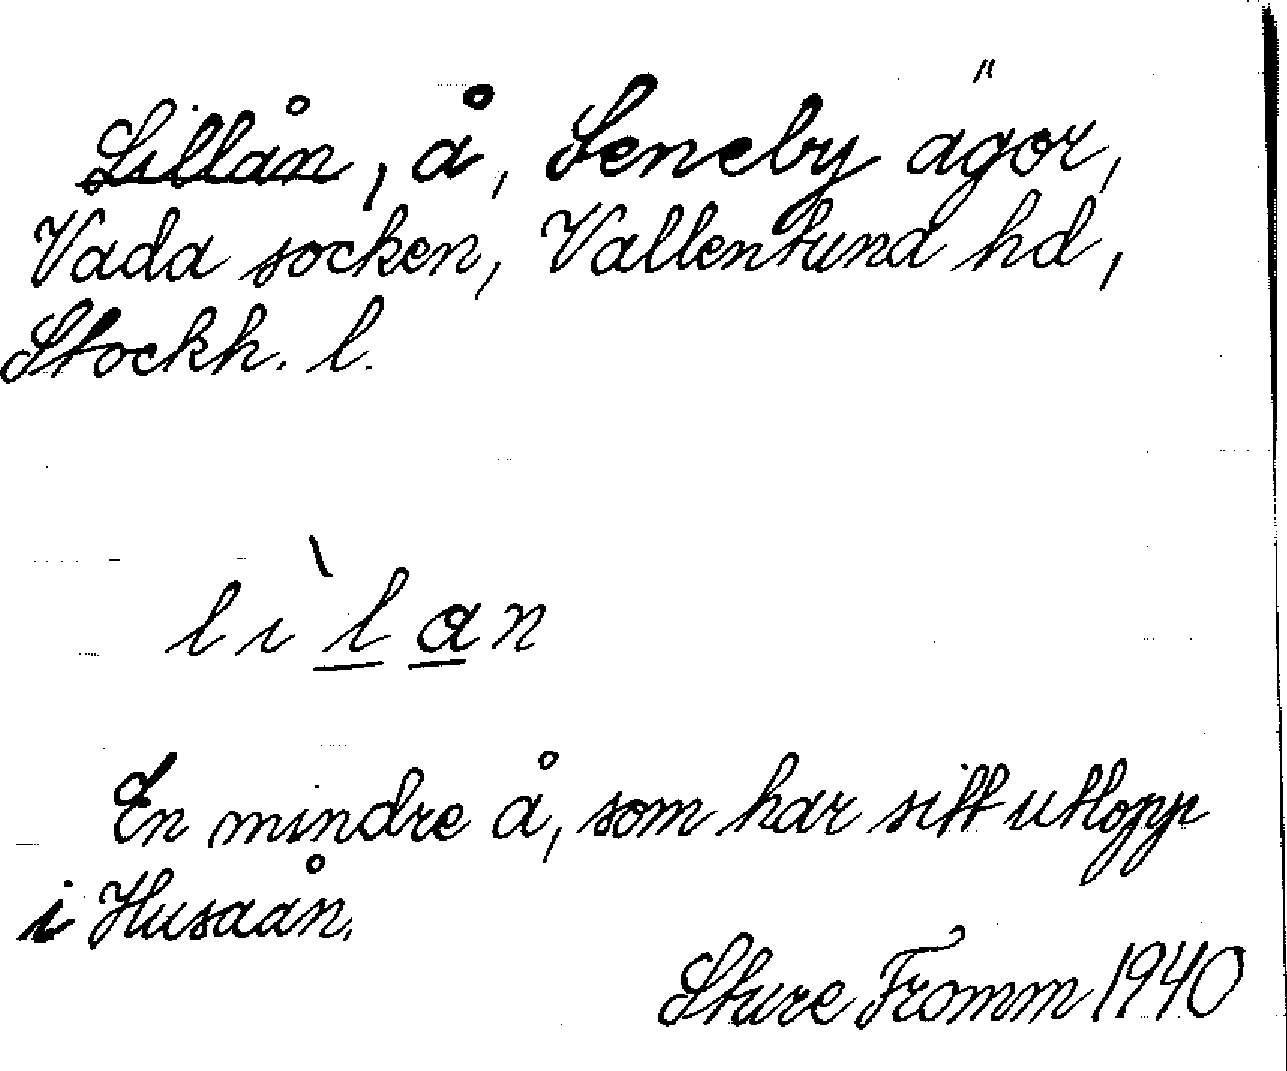 Lillån, å, Seneby ägor,
Vada socken, Vallentuna hd,
Stockh. l.
lìlan
En mindre å, som har sitt utlopp
i Husaån.
Sture Fromm 1940